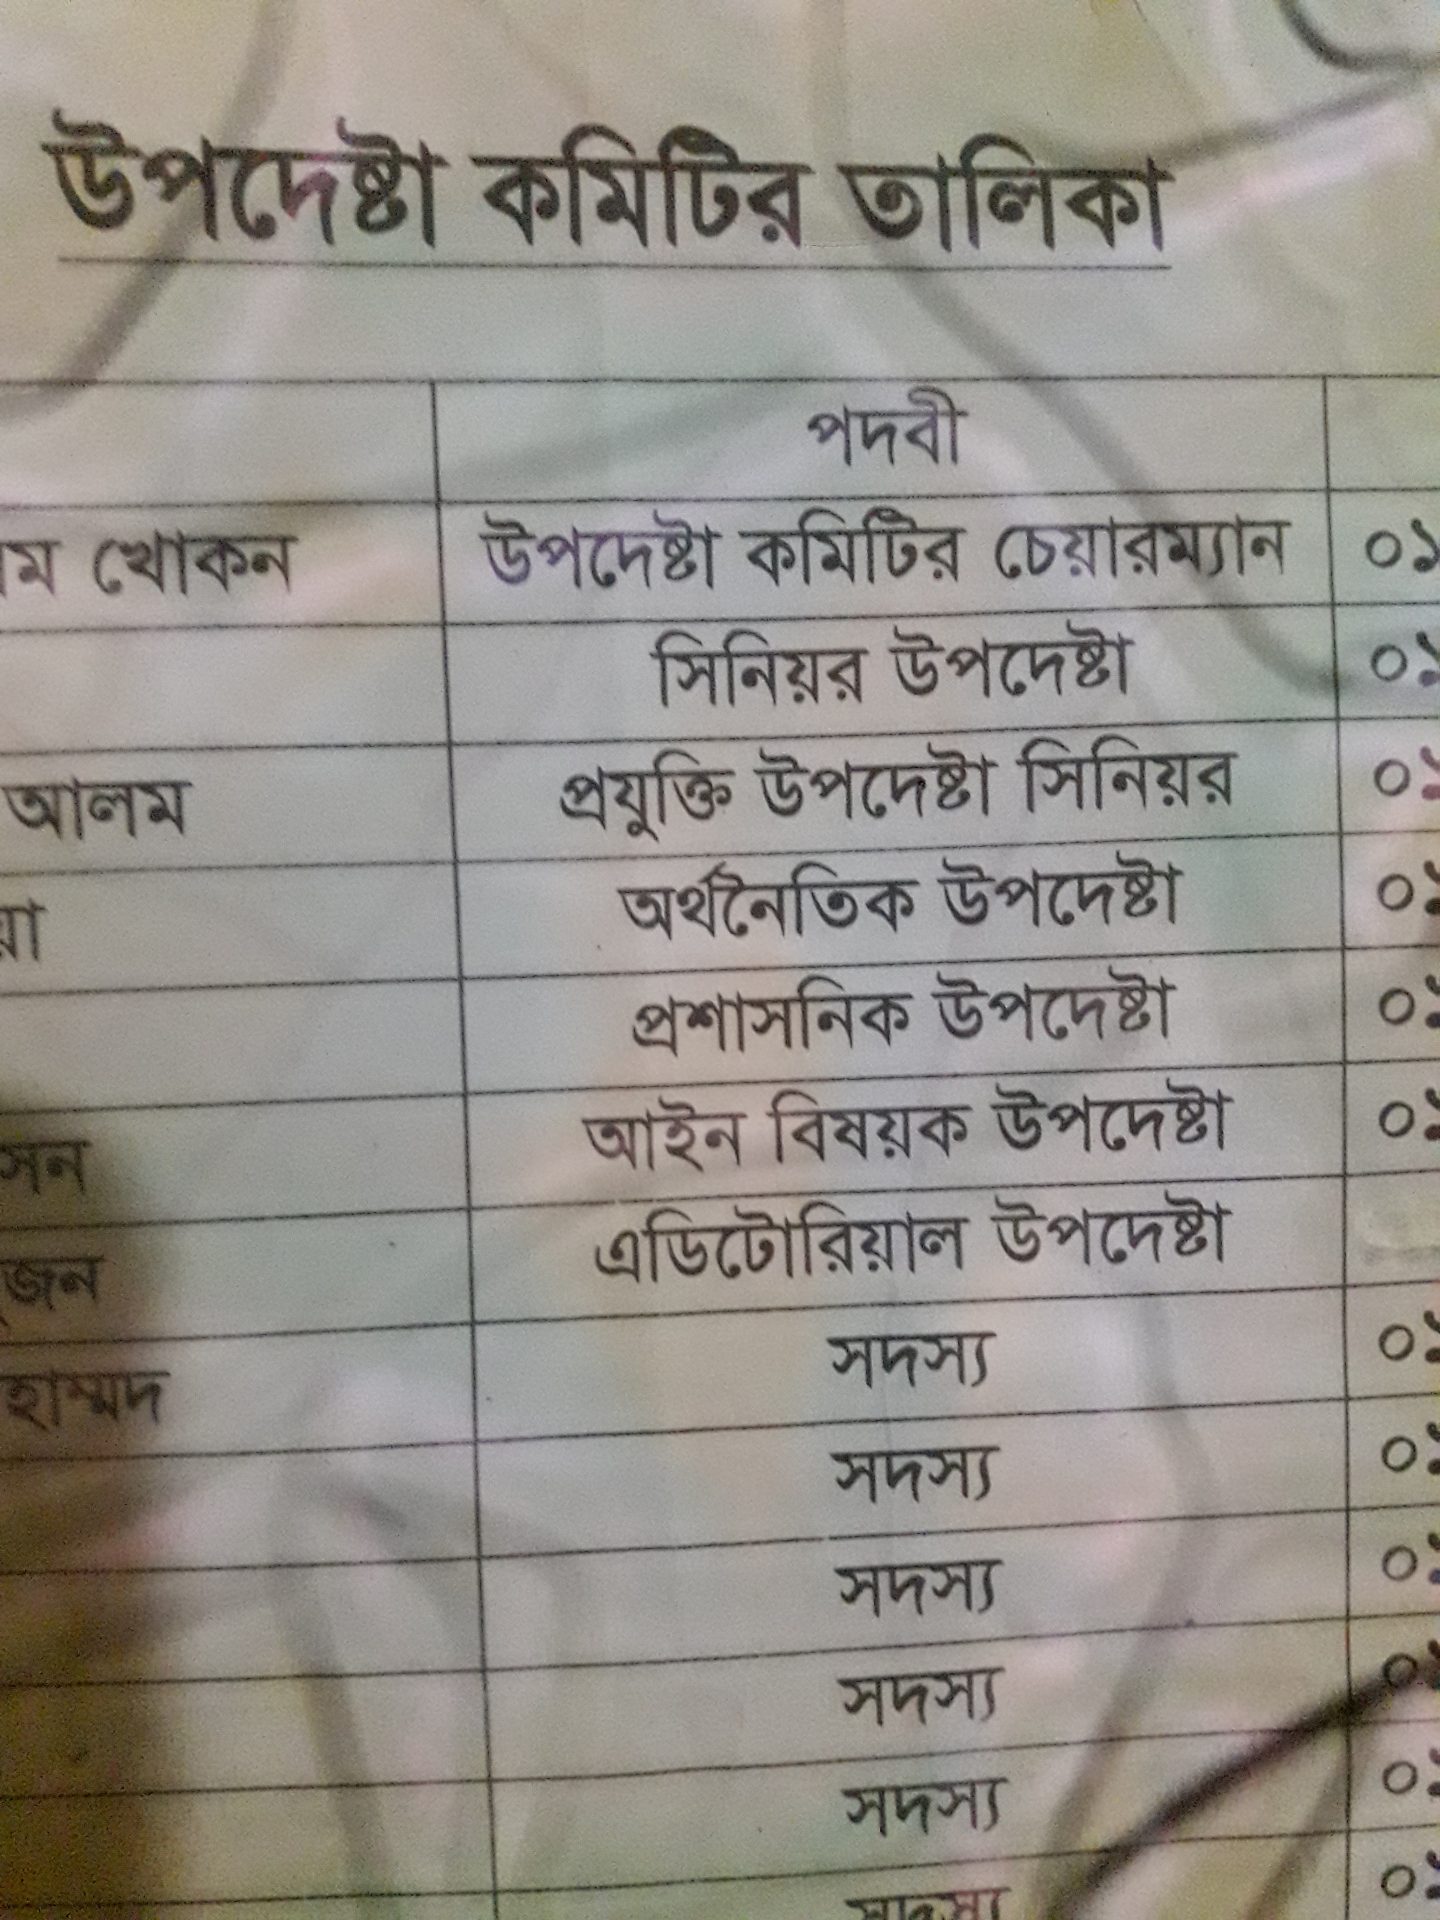 উপদেষ্টা কমিটির তালিকা
পদবী
খোকন উপদেষ্টা কমিটির চেয়ারম্যান ০১
সিনিয়র উপদেষ্টা ০১
আলম প্রযুক্তি উপদেষ্টা সিনিয়র ০১
অর্থনৈতিক উপদেষ্টা ০১
প্রশাসনিক উপদেষ্টা ০১
আইন বিষয়ক উপদেষ্টা ০১
এডিটোরিয়াল উপদেষ্টা
সদস্য ০১
সদস্য ০১
সদস্য ০১
সদস্য ০১
সদস্য ০১
সদস্য ০১